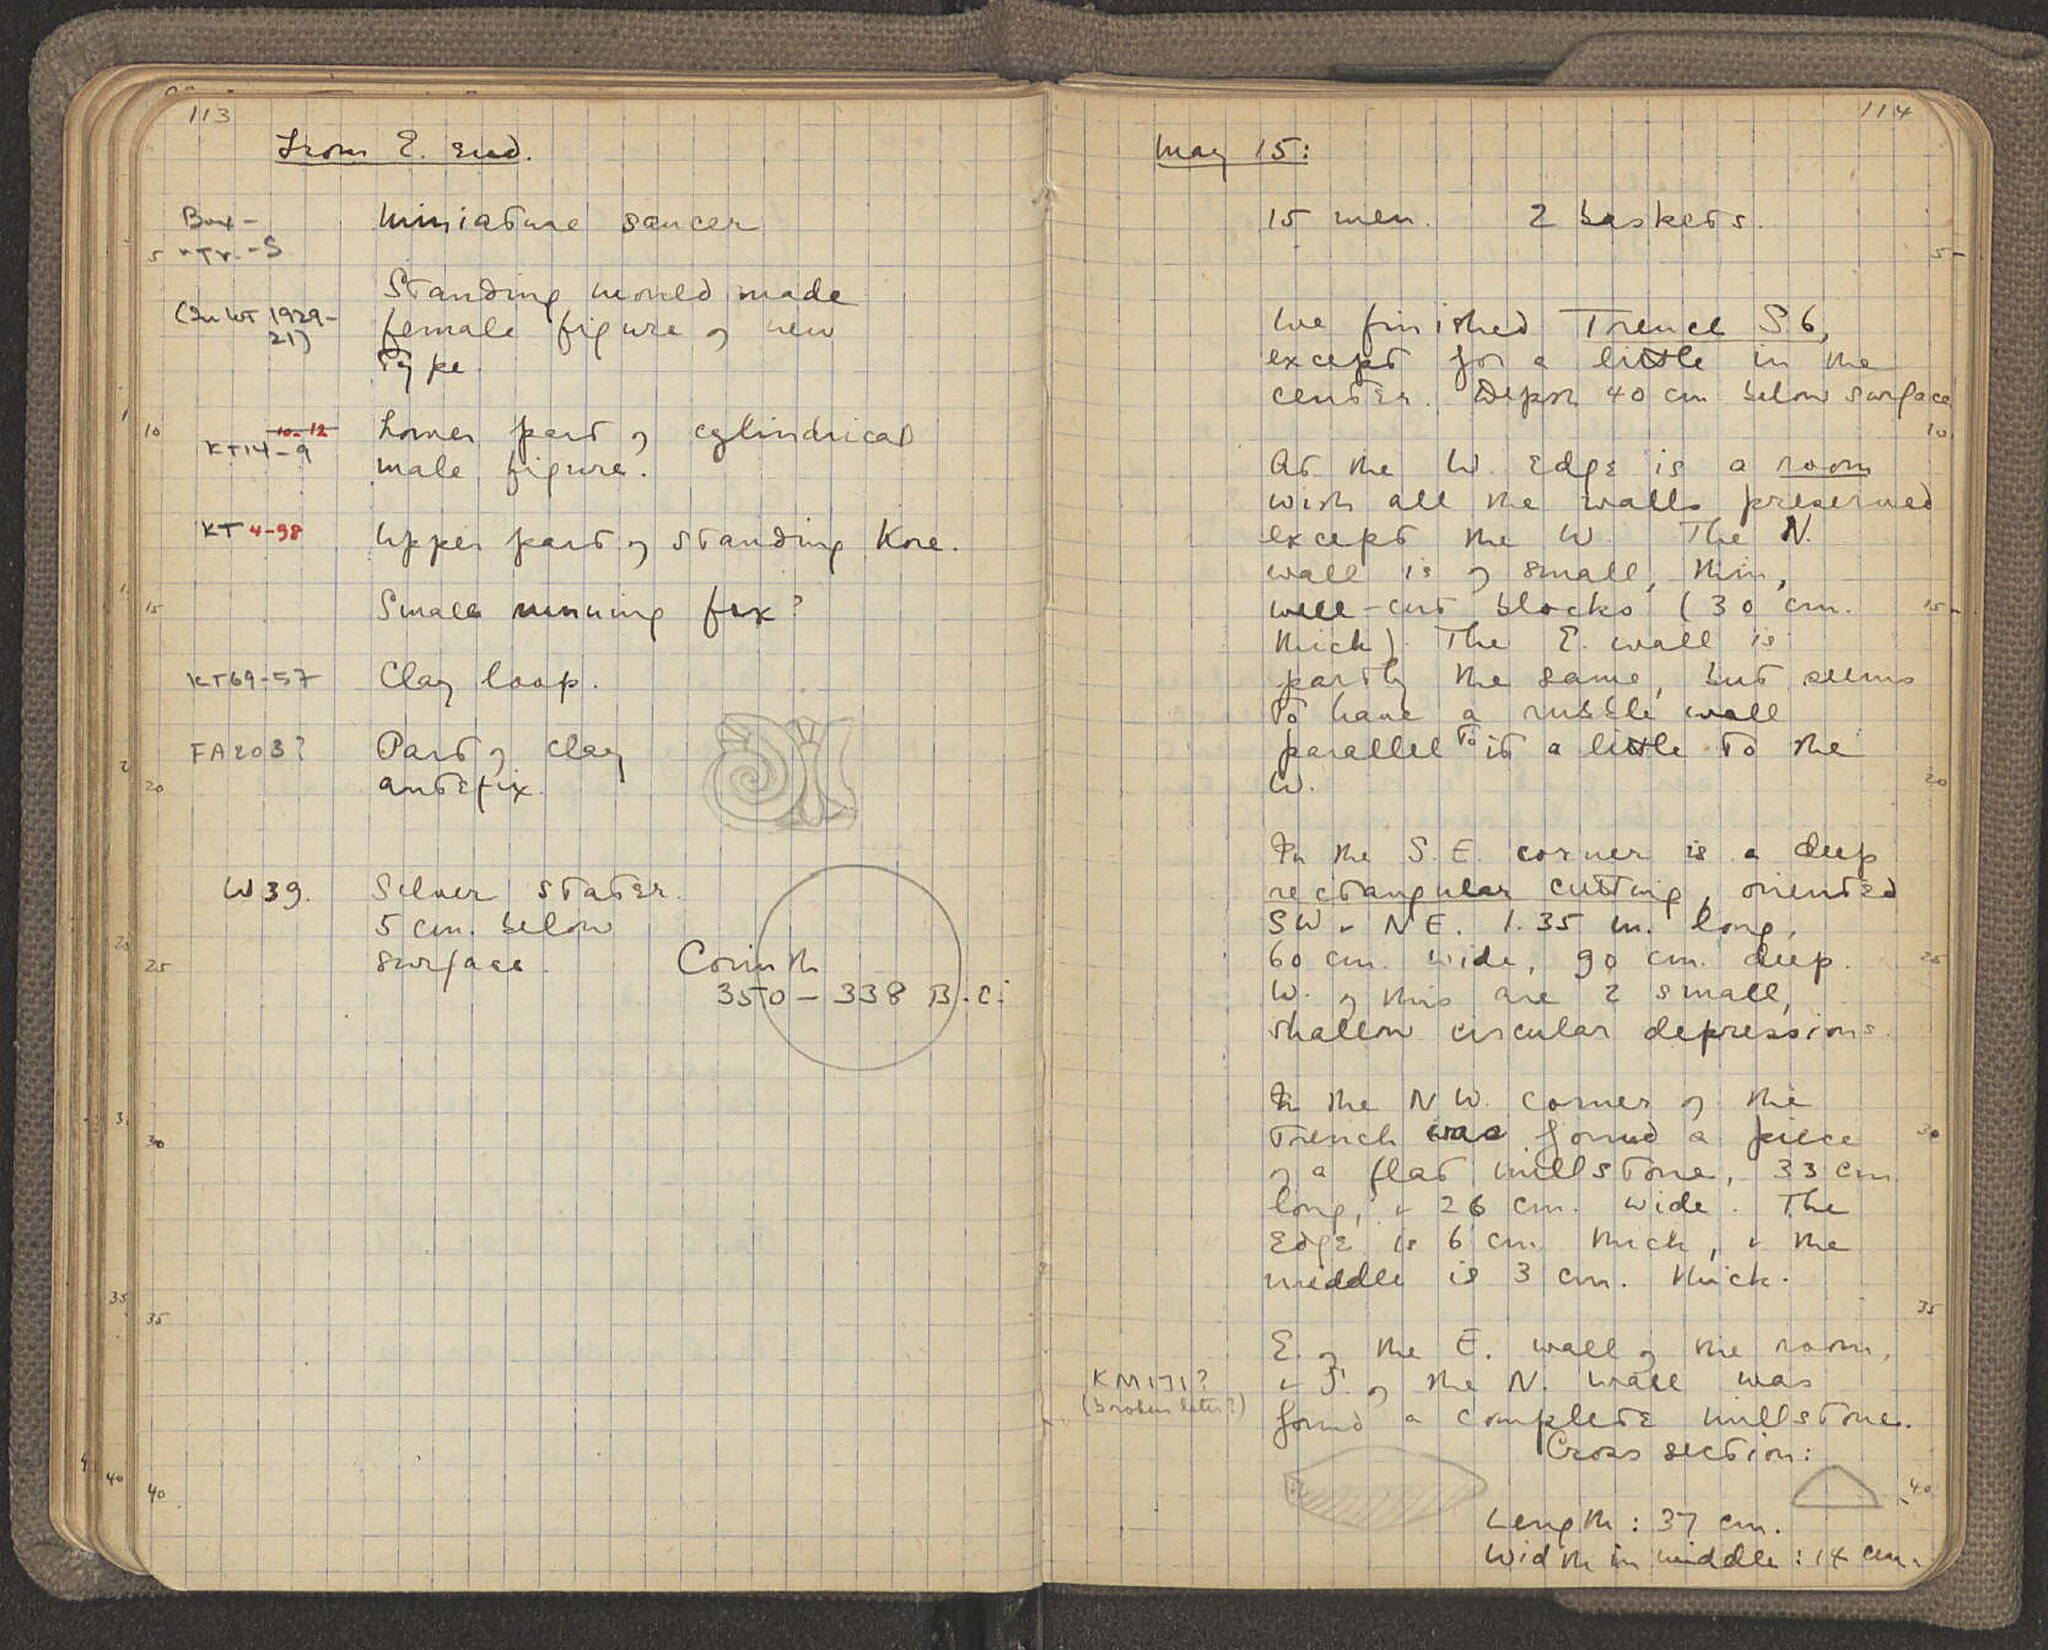 113
From E. end.
Box -
"Tr. - S
Miniature saucer
Standing mould made
(In WT 1929-
21)
female figure of new
type.
10-12
KT14-9
Lower part of cylindrical
male figure.
KT 4-98
Upper part of standing Kore.
Small running fox?
KT69-57
Clay loop.
FA203?
Part of clay
antefix.
W39.
Silver stater.
5 cm. below
surface.
Corinth
350-338 B.C.
5
10
15
20
25
30
35
40
114
May 15:
15 men. 2 baskets.
We finished Trench S6,
except for a little in the
center. Depth 40 cm below surface
At the W. edge is a room
with all the walls preserved
except the W. The N.
wall is of small, thin,
well-cut blocks (30 cm.
thick). The E. wall is
partly the same, but seems
to have a rubble wall
parallel to it a little to the
W.
In the S.E. corner is a deep
rectangular cutting, oriented
SW - NE. 1.35 m. long,
60 cm. wide, 90 cm. deep.
W. of this are 2 small,
shallow circular depressions.
In the NW. corner of the
trench was found a piece
of a flat millstone, 33 cm
long, & 26 cm. wide. The
edge is 6 cm thick, & the
middle is 3 cm. thick.
E. of the E. wall of the room,
KM171?
& S. of the N. wall was
(broken later?)
found a complete millstone.
Cross section:
Length: 37 cm.
Width in middle: 14 cm.
5
10
15
20
25
30
35
40